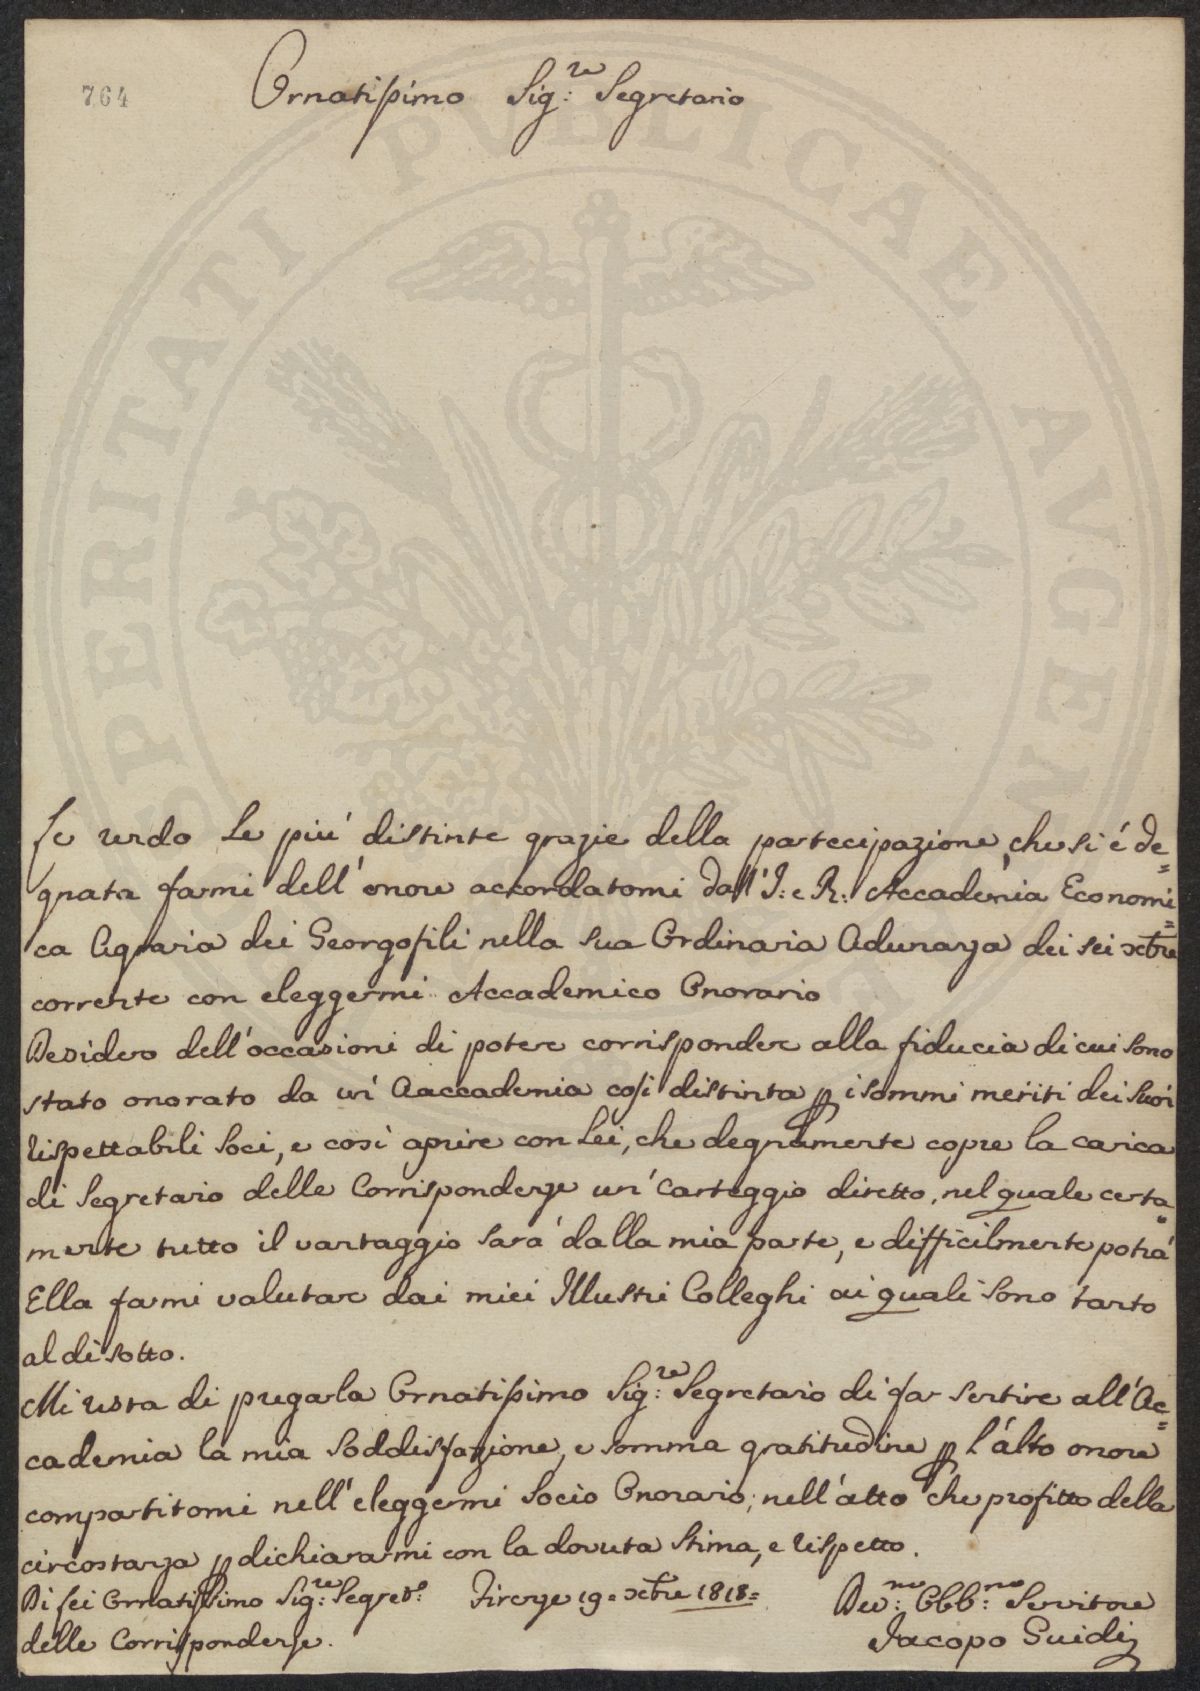 764
Ornatissimo Sig:re Segretario
PROSPERITATI PUBLICAE AVGEN
Le rendo Le più distinte grazie della partecipazione, che si é de=
gnata farmi dell'onore accordatomi dall'I: e R: Accademia Economi=
ca Agraria dei Georgofili nella sua Ordinaria Adunanza dei sei Xbre
corrente con eleggermi Accademico Onorario
Desidero dell'occasioni di potere corrispondere alla fiducia di cui sono
stato onorato da un' Aaccademia cosi distinta p i sommi meriti dei suoi
rispettabili Soci, e così aprire con Lei, che degnamente copre la carica
di Segretario delle Corrispondenze un' Carteggio diretto, nel quale certa=
mente tutto il vantaggio sarà dalla mia parte, e difficilmente potrà
Ella farmi valutare dai miei Illustri Colleghi ai quali sono tanto
al di sotto.
Mi resta di pregarla Ornatissimo Sig:re Segretario di far sentire all'Ac=
cademia la mia Soddisfazione, e somma gratitudine p l'alto onore
compartitomi nell'eleggermi Socio Onorario; nell'atto che profitto della
circostanza p dichiararmi con la dovuta stima, e rispetto.
Di Lei Ornatissimo Sig:re Segreto: Firenze 19=Xbre 1818=
delle Corrispondenze.
Dev:mo Obb:mo Servitore
Jacopo Guidi